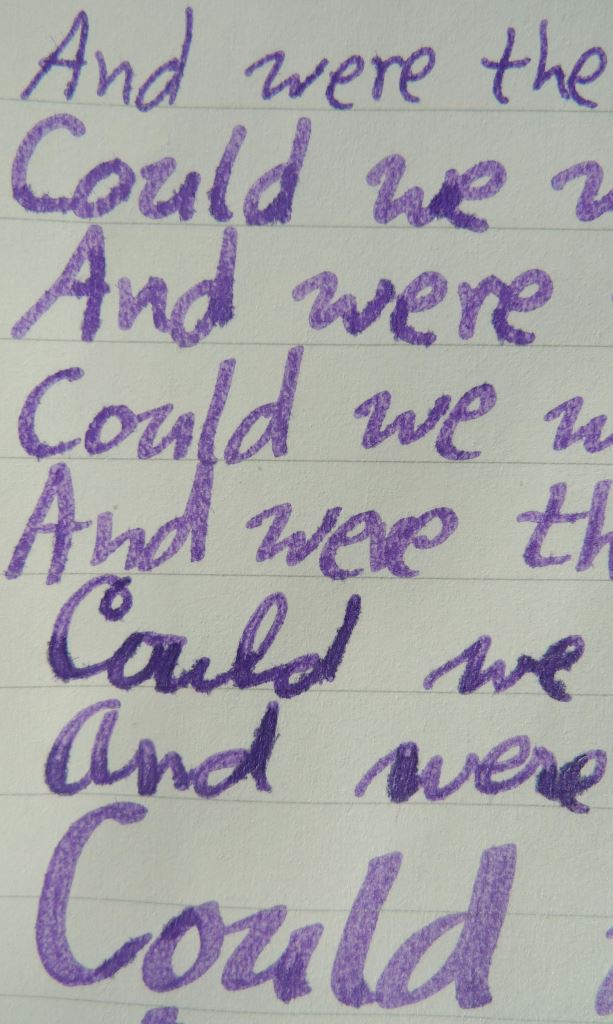 And were the
Could we
And were
Could we
And were th
Could we
And were
Could